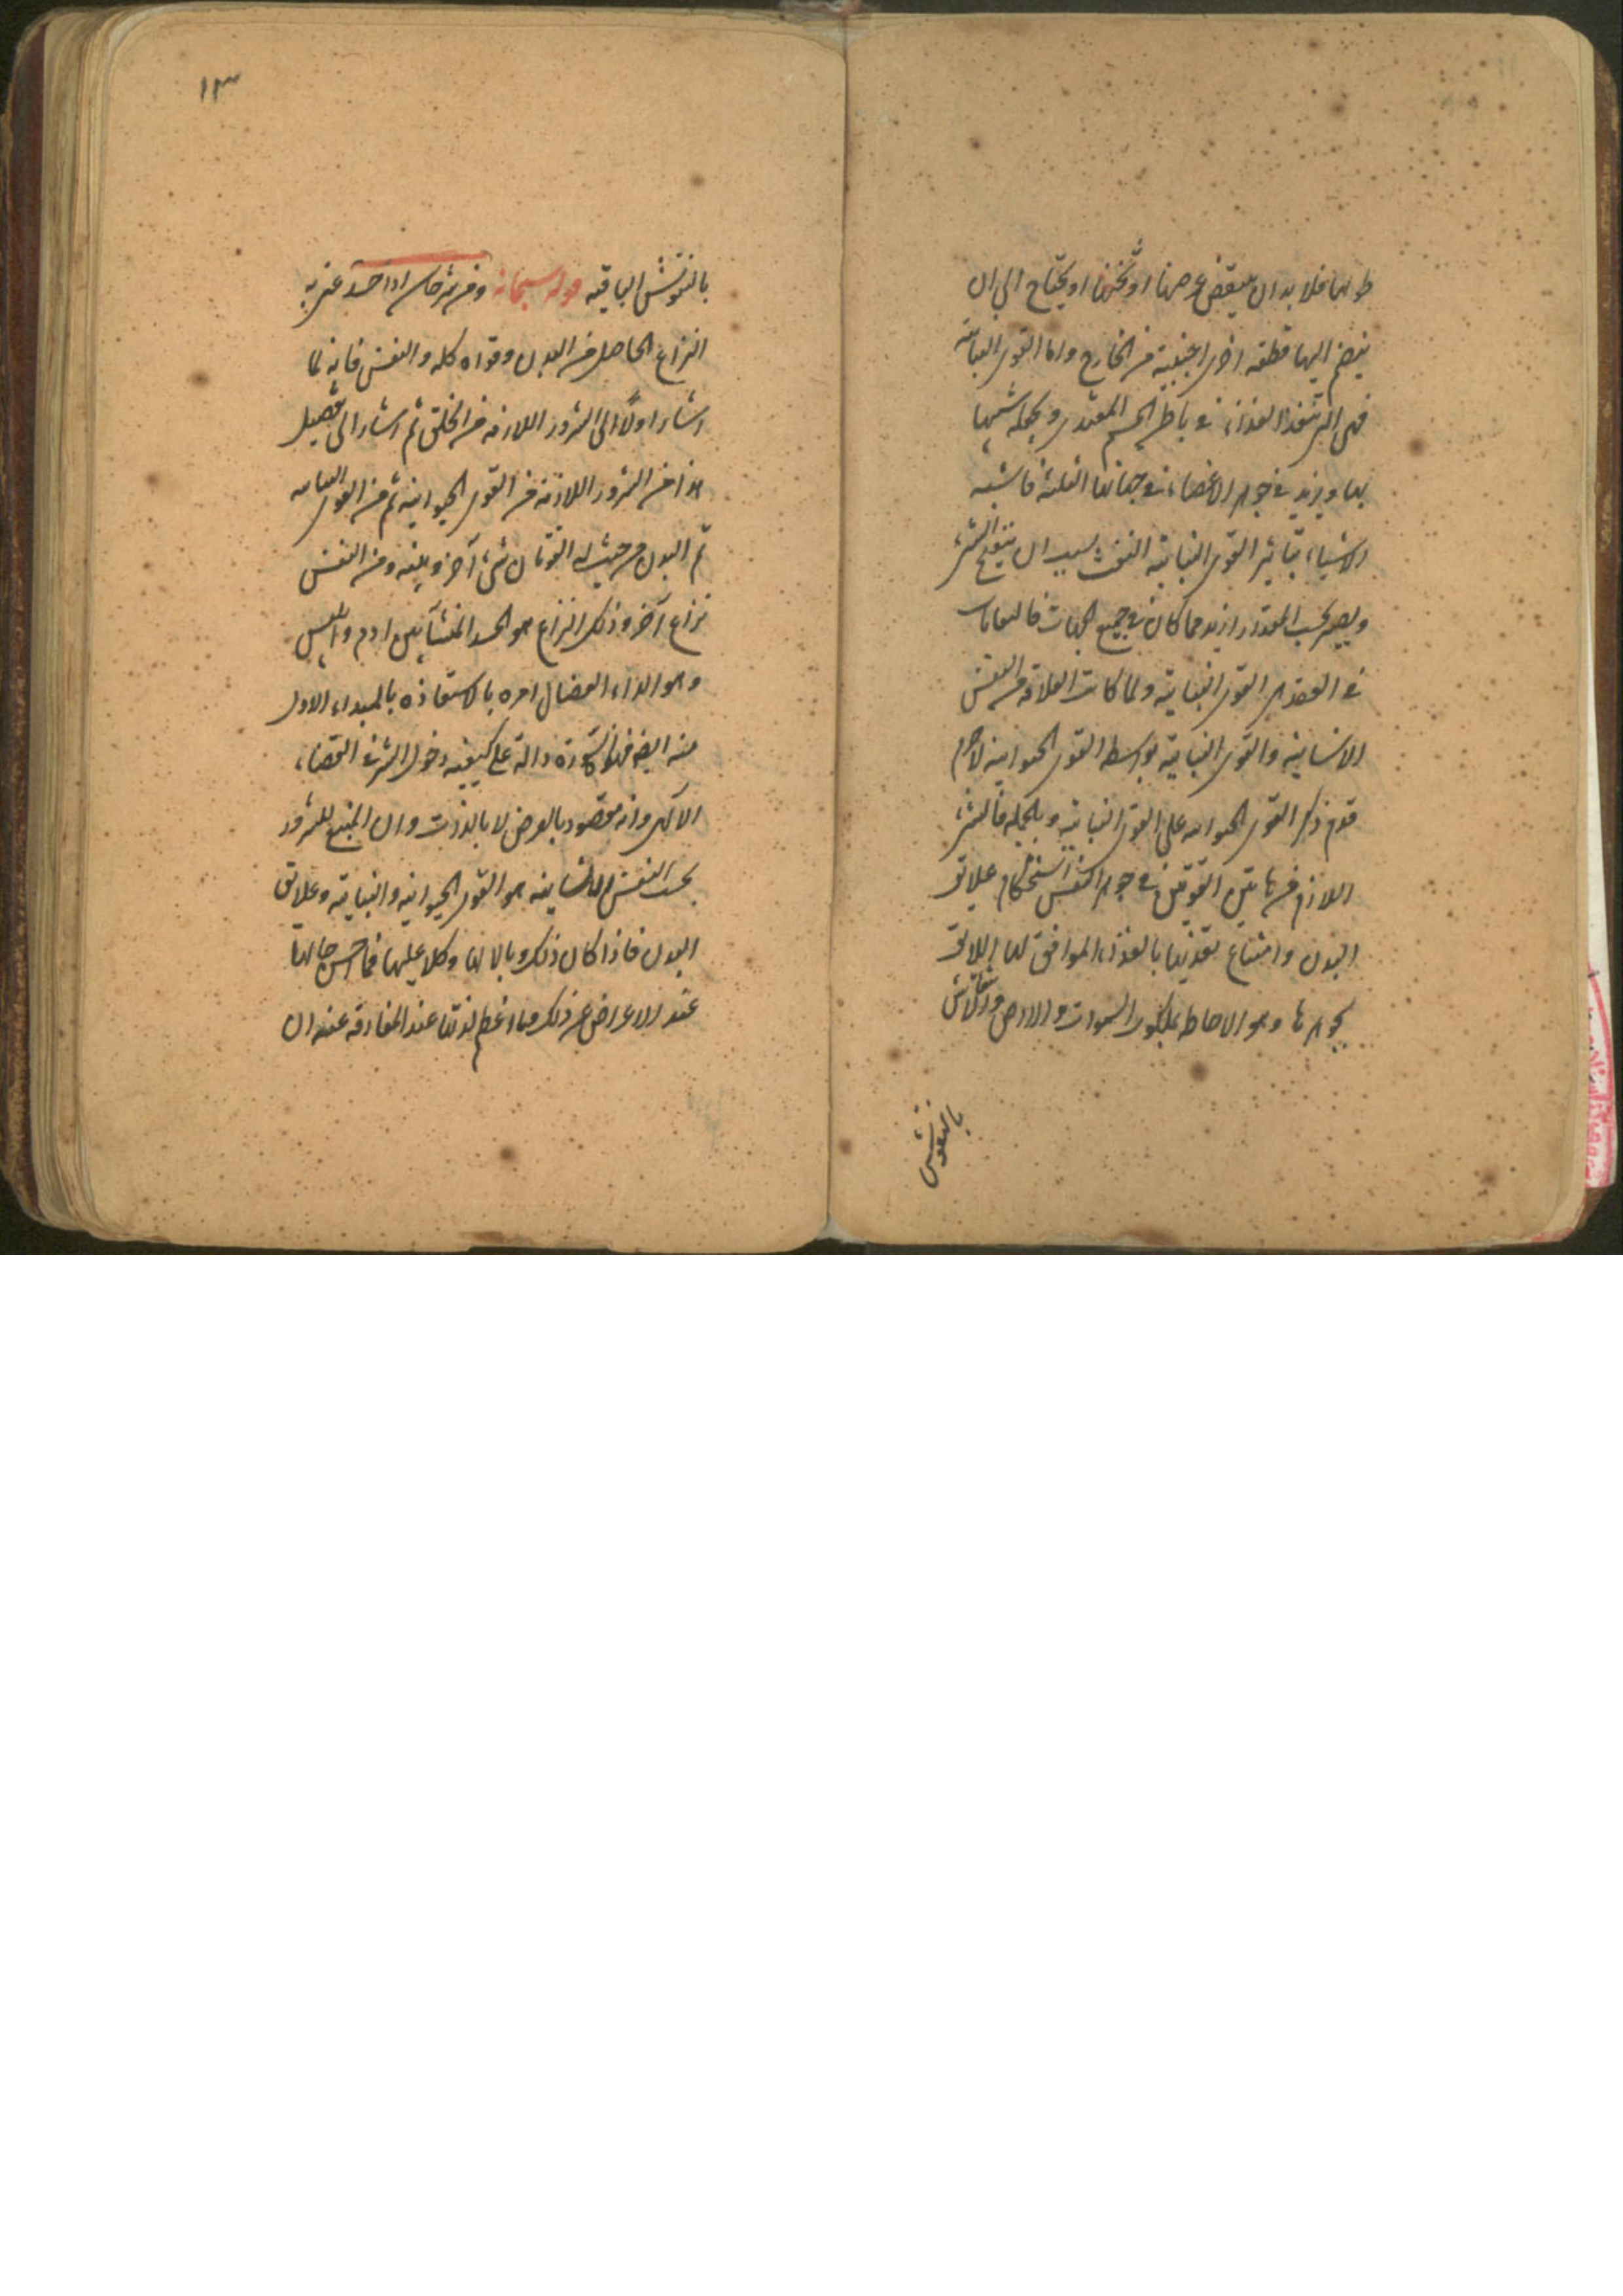 طولها فلا بد ان ينقض عرضها او ثخنها او يحتاج الى ان
ينضم اليها قطعه اخرى اجنبية من الخارج واما القوى النباتية
فهى التى تنفذ الغذاء فى باطن الجسم المغتذى ويجعله شبيها
بها ويزيد فى جوهر الاعضاء فى جهاتها الثلثة فاشبه
الاشياء بتأثير القوى النباتية النفث سبب ان ينتفخ الشىء
ويصير بحسب المقدار ازيد مما كان فى جميع الجهات فالنفاثات
فى العقد هى القوى النباتية ولما كانت العلاقة من النفس
الانسانية والقوى النباتية بواسطه القوى الحيوانية لاجرم
قدم ذكر القوى الحيوانيه على القوى النباتية وبالجمله فالشر
اللازم من هاتين القوتين فى جوهر النفس استحكام علائق
البدن وامتناع تغذيها بالغذاء الموافق لها اللائق
بجوهرها وهو الاحاطه بملكوت السموات والارض وانتقاش
بالنقوش
١٣
بالنقوش الباقيه قوله سبحانه ومن شر حاسد اذا حسد عنى به
النزاع الحاصل من البدن وقواه كله والنفس فانه لما
اشار اولًا الى الشرور اللازمه من الخلق ثم اشار الى تفصيل
هذا من الشرور اللازمة من القوى الحيوانية ثم من القوى النباتيه
ثم البدن من حيث له القوتان شىء آخر وبينه ومن النفس
نزاع آخر وذلك النزاع هو الحسد المنشأ بين ادم وابليس
وهو الداء العضال امره بالاستعاذه بالمبداء الاول
منه ايضا فهذه السورة دالة على كيفيه دخول الشر فى القضاء
الآلهى وانه مقصود بالعرض لا بالذات وان المنبع للشرور
بحسب النفس الانسانيه هو القوى الحيوانيه والنباتية وعلائق
البدن فاذا كان ذلك وبالا لها وكلا عليها فما احسن حالها
عند الاعراض عن ذلك وما اعظم لذتها عند المفارقه عنه ان